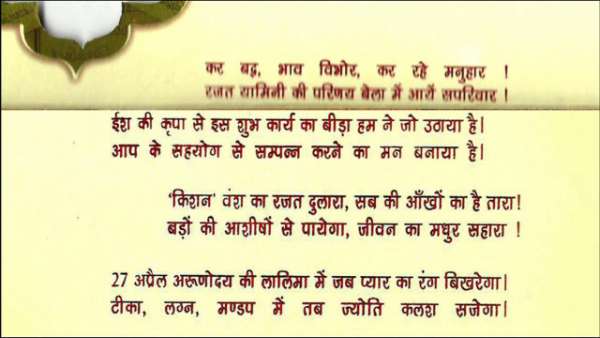 कर बद्ध, भाव विभोर, कर रहे मनुहार !
रजत यामिनी की परिणय बेला में आयें सपरिवार !
ईश की कृपा से इस शुभ कार्य का बीड़ा हम ने जो उठाया है।
आप के सहयोग से सम्पन्न करने का मन बनाया है।
'किशन' वंश का रजत दुलारा, सब की आँखों का है तारा!
बड़ों की आशीषों से पायेगा, जीवन का मधुर सहारा !
27 अप्रैल अरूणोदय की लालिमा में जब प्यार का रंग बिखरेगा।
टीका, लग्न, मण्डप में तब ज्योति कलश सजेगा।